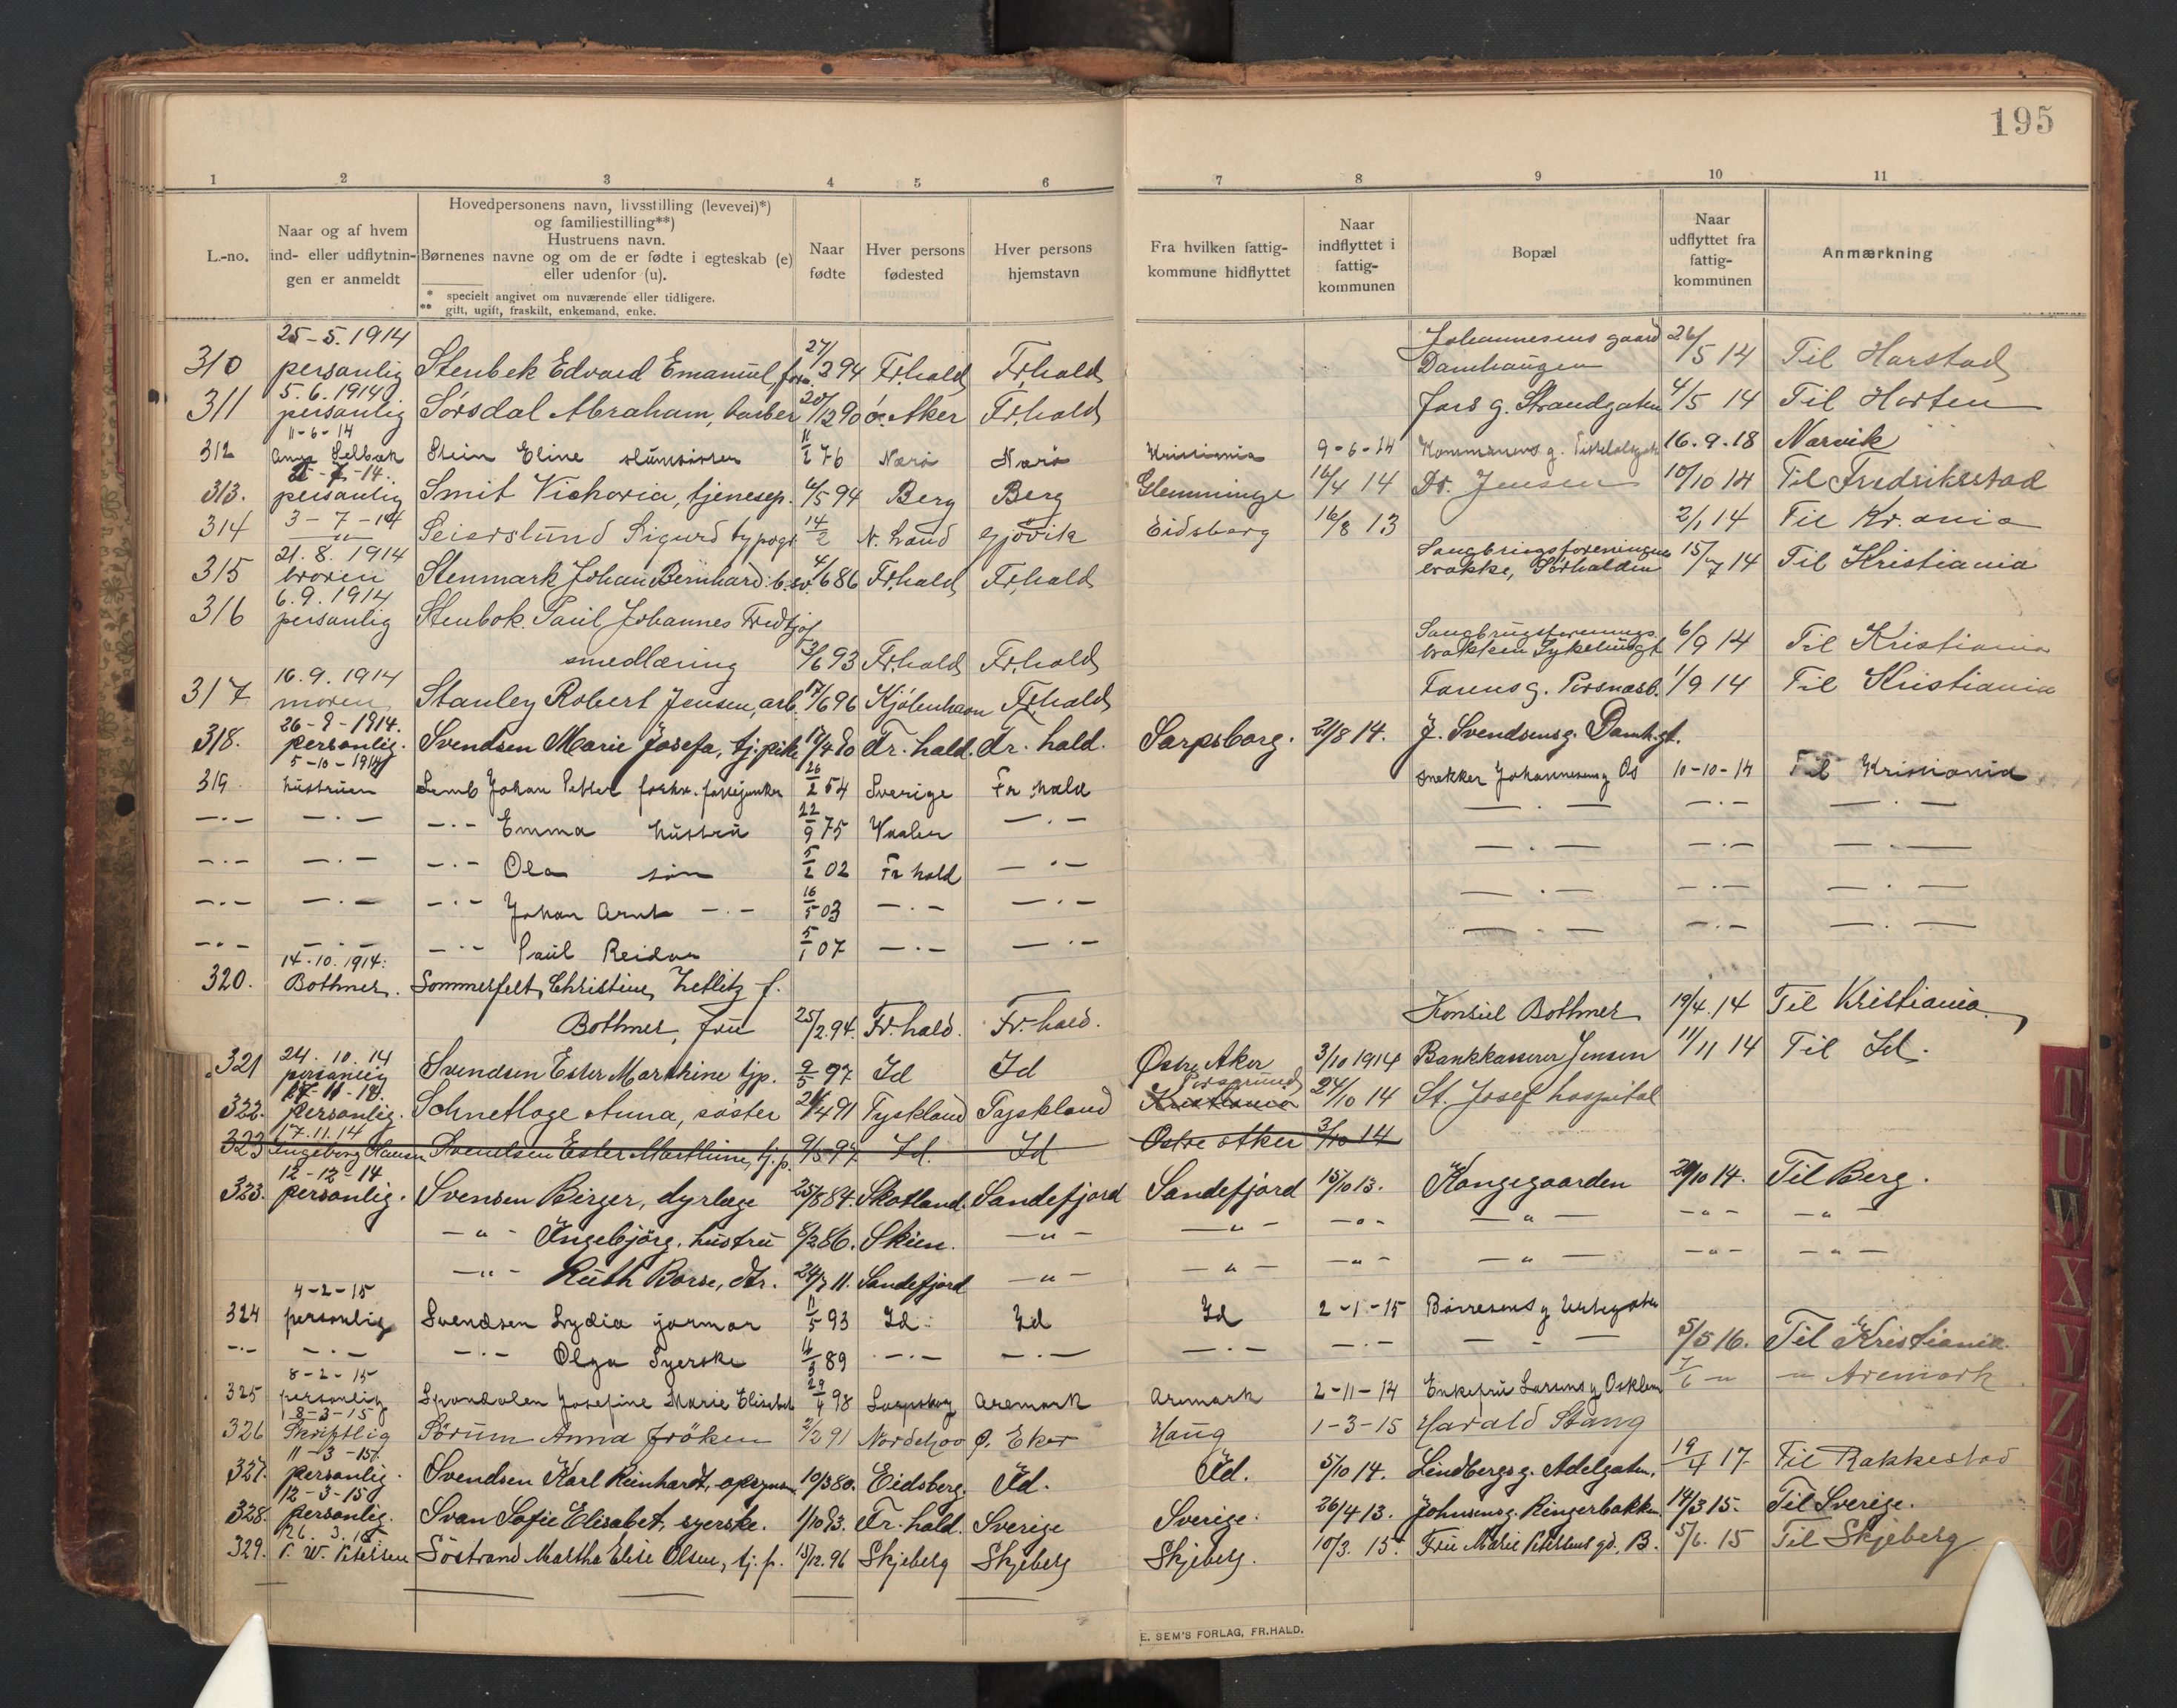 195
1 2 3 4 5 6 7 8 9 10 11
L.-no.
Naar og af hvem
ind- eller udflytnin-
gen er anmeldt
Hovedpersonens navn, livsstilling (levevei)*)
og familiestilling**)
Hustruens navn.
Børnenes navne og om de er fødte i egteskab (e)
eller udenfor (u).
* specielt angivet om nuværende eller tidligere.
** gift, ugift, fraskilt, enkemand, enke.
Naar
fødte
Hver persons
fødested
Hver persons
hjemstavn
Fra hvilken fattig-
kommune hidflyttet
Naar
indflyttet i
fattig-
kommunen
Bopæl
Naar
udflyttet fra
fattig-
kommunen
Anmærkning
25-5.1914 Johannesens gaard
310 personlig Stenbek Edvard Emanuel, 27/2 94 Fr.hald Fr.hald Damhaugen 26/5 14 Til Harstad
5.6.1914
311 personlig Sörsdal Abraham, barber 20/12 90 ö. Aker Fr.hald Fors g. Strandgaten 4/5 14 Til Horten
11-6-14
312 Anna Selbak Stein Eline slumsöster 11/2 76 Nærö Nærö Kristiania 9-6-14 16.9.18 Narvik
2-7-14.
313. personlig Smit Victoria, tjenesep. 4/5 94 Berg Berg Glemminge 16/4 14 Dr. Jensen 10/10 14 Til Fredriksstad
3-7-14
314 -"- Seierslund Sigurd typogr 14/2 N. Land Gjövik Eidsberg 16/8 13 2/1 14 Til Kr.ania
21.8.1914 Saugbrugsforeningens
315 broren Stenmark Johan Bernhard 4/6 86 Fr.hald Fr.hald brakke, Sörhalden 15/7 14 Til Kristiania
6.9.1914
316 personlig Stenbok Paul Johannes Fredtjof
Saugbrugsforenings.
smedlæring 13/6 93 Fr.hald Fr.hald brakken Sykehusgt 6/9 14 Til Kristiania
16.9.1914
317 moren Stanley Robert Jensen, arb. 17/6 96 Kjöbenhavn Fr.hald Farens g. Pisnasb. 1/9 14 Til Kristiania
26-9-1914.
318. personlig. Svendsen Marie Josefa, tj.pike 17/4 90 Fr. hald. Fr. hald. Sarpsborg. 21/8 14. J. Svendsens g. Damh.gt.
5-10-1914
319 hustruen Lemb Johan Petter 26/2 54 Sverige Fr hald snekker Johannesens g Os 10-10-14 Til Kristiania
-.- -.- -.- Emma hustru 22/9 75 Waaler -.- -.- -.- -.-
-.- -.- -.- Ola sön 5/2 02 Fr hald -.- -.- -.- -.-
-.- -.- -.- Johan Arnt -.- 16/5 03 -.- -.- -.- -.- -.-
-.- -.- -.- Paul Reidar 5/1 07 -.- -.- -.- -.- -.-
14.10.1914.
320. Bothner. Sommerfelt, Christine, Zetlitz f.
Bothner, fru 25/2.94. Fr.hald. Fr.hald. Konsul Bothner 19/4.14 Til Kristiania.
24.10.14
321 personlig Svendsen Ester Marthine tjp. 9/5 97 Id Id Östre Aker 3/10 1914 Bankkasserer Jensen 11/11 14 Til Id.
17-11-14. Porsgrund
322. personlig. Schnetlage Anna, söster 26/4 91 Tyskland Tyskland Kristiania 24/10 14 St. Josef hospital
17.11.14
323 Ingeborg Hansen Svendsen Ester Marthine, tj.p. 9/5 97 Id. Id Östre Aker 3/10 14
12-12-14
323. personlig. Svensen Birger, dyrlæge 25/8 84. Skotland. Sandefjord Sandefjord 15/10 13. Kongegaarden 29/10 14. Til Berg.
-"- Ingebjörg, hustru 8/2 86. Skien. -"- -"- -"- -"- -"- -"-
-"- Ruth Borse, dtr. 24/7 11. Sandefjord -"- -"- -"- -"- -"- -"-
4-2-15
324 personlig Svendsen Lydia jormor 11/5 93 Id Id Id 2-1-15 Börresens g
-.- -.- -.- Olga Syerske 4/3 89 -.- -.- -.- -.- - - 5/5 16. Til Kristiania.
8-2-15
325 personlig Spondalen Josefine Marie Elisabet 29/4 98 Sarpsborg Aremark Aremark 2-11-14 Enkefru Larsens g Osklev 7/6 -"- -"- Aremark
8-3-15
326 Skriftlig Sörum Anna Fröken 2/2 91 Norderhov Ö. Eker Haug 1-3-15 Harald Stang
11-3-15.
327. personlig. Svendsen Karl Reinhardt, opsynsm. 10/3 80. Eidsberg. Id. Id. 5/10 14. Lindbergs g. Adelgaten. 19/4 17 Til Rakkestad
12-3-15
328. personlig. Svan Sofie Elisabet, syerske. 1/10 93. Fr. hald. Sverige Sverige. 26/4 13. Johnsens g. Ringerbakken 14/3 15. Til Sverige.
26.3.15.
329. P. W. Petersen Söstrand Martha Elise Olsen, tj.p. 15/12.96 Skjeberg Skjeberg Skjeberg. 10/3. 15. Fru Marie Petersens gd. B. 5/6. 15 Til Skjeberg
E. SEM'S FORLAG, FR.HALD.
T
U
W
X
Y
Z
Æ
Ø